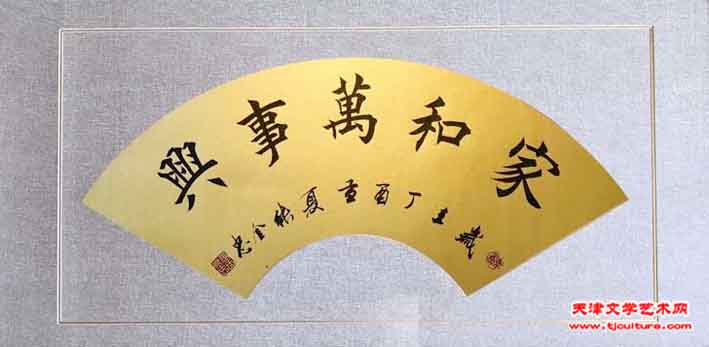 家和萬事興
歲在丁酉夏
天津文学艺术网
www.tjculture.com